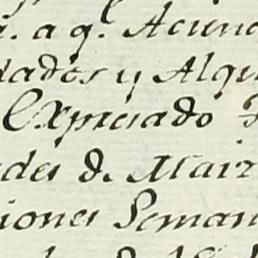 a q.l Acund
dados y Alqu
Expresado
des d. Mair
iones Seman